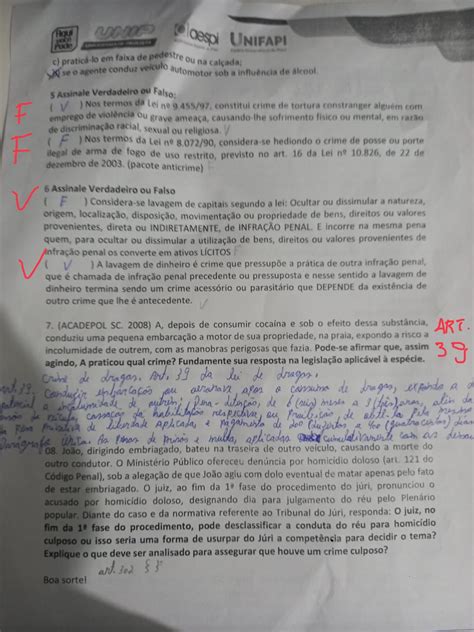 Aqui você Pode
UNIP
aespi UNIFAPI
c) praticá-lo em faixa de pedestre ou na calçada;
se o agente conduz veículo automotor sob a influência de álcool.
5 Assinale Verdadeiro ou Falso:
( V ) Nos termos da Lei nº 9.455/97, constitui crime de tortura constranger alguém com
F
emprego de violência ou grave ameaça, causando-lhe sofrimento físico ou mental, em razão
de discriminação racial, sexual ou religiosa.
F
( F ) Nos termos da Lei nº 8.072/90, considera-se hediondo o crime de posse ou porte
ilegal de arma de fogo de uso restrito, previsto no art. 16 da Lei nº 10.826, de 22 de
dezembro de 2003. (pacote anticrime)
6 Assinale Verdadeiro ou Falso
V
( F ) Considera-se lavagem de capitais segundo a lei: Ocultar ou dissimular a natureza,
origem, localização, disposição, movimentação ou propriedade de bens, direitos ou valores
provenientes, direta ou INDIRETAMENTE, de INFRAÇÃO PENAL. E incorre na mesma pena
quem, para ocultar ou dissimular a utilização de bens, direitos ou valores provenientes de
infração penal os converte em ativos LÍCITOS
V
( V ) A lavagem de dinheiro é crime que pressupõe a prática de outra infração penal,
que é chamada de infração penal precedente ou pressuposta e nesse sentido a lavagem de
dinheiro termina sendo um crime acessório ou parasitário que DEPENDE da existência de
outro crime que lhe é antecedente.
7. (ACADEPOL SC. 2008) A, depois de consumir cocaína e sob o efeito dessa substância,
ART. 39
conduziu uma pequena embarcação a motor de sua propriedade, na praia, expondo a risco a
incolumidade de outrem, com as manobras perigosas que fazia. Pode-se afirmar que, assim
agindo, A praticou qual crime? Fundamente sua resposta na legislação aplicável à espécie.
Crime de drogas. Art. 39 da lei de drogas.
Art. 39. Conduzir embarcação ou aeronave após o consumo de drogas, expondo a dano
potencial a incolumidade de outrem; pena - detenção, de 6 (seis) meses a 3 (três) anos, além da
cassação da habilitação respectiva ou proibição de obtê-la, pelo mesmo
pena privativa de liberdade aplicada, e pagamento de 200 (duzentos) a 400 (quatrocentos) dias
Parágrafo único. As penas de prisão e multa, aplicadas cumulativamente com as demais
08. João, dirigindo embriagado, bateu na traseira de outro veículo, causando a morte do
outro condutor. O Ministério Público ofereceu denúncia por homicídio doloso (art. 121 do
Código Penal), sob a alegação de que João agiu com dolo eventual de matar apenas pelo fato
de estar embriagado. O juiz, ao fim da 1ª fase do procedimento do júri, pronunciou o
acusado por homicídio doloso, designando dia para julgamento do réu pelo Plenário
popular. Diante do caso e da normativa referente ao Tribunal do Júri, responda: O juiz, no
fim da 1ª fase do procedimento, pode desclassificar a conduta do réu para homicídio
culposo ou isso seria uma forma de usurpar do Júri a competência para decidir o tema?
Explique o que deve ser analisado para assegurar que houve um crime culposo?
art. 302
Boa sorte!